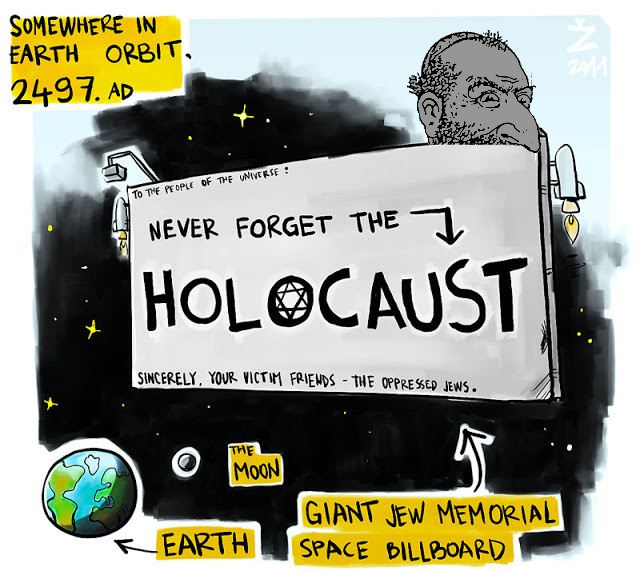 SOMEWHERE IN
EARTH ORBIT.
2497. AD
Ž
2011
TO THE PEOPLE OF THE UNIVERSE:
NEVER FORGET THE
HOLOCAUST
SINCERELY, YOUR VICTIM FRIENDS - THE OPPRESSED JEWS.
THE
MOON
EARTH
GIANT JEW MEMORIAL
SPACE BILLBOARD